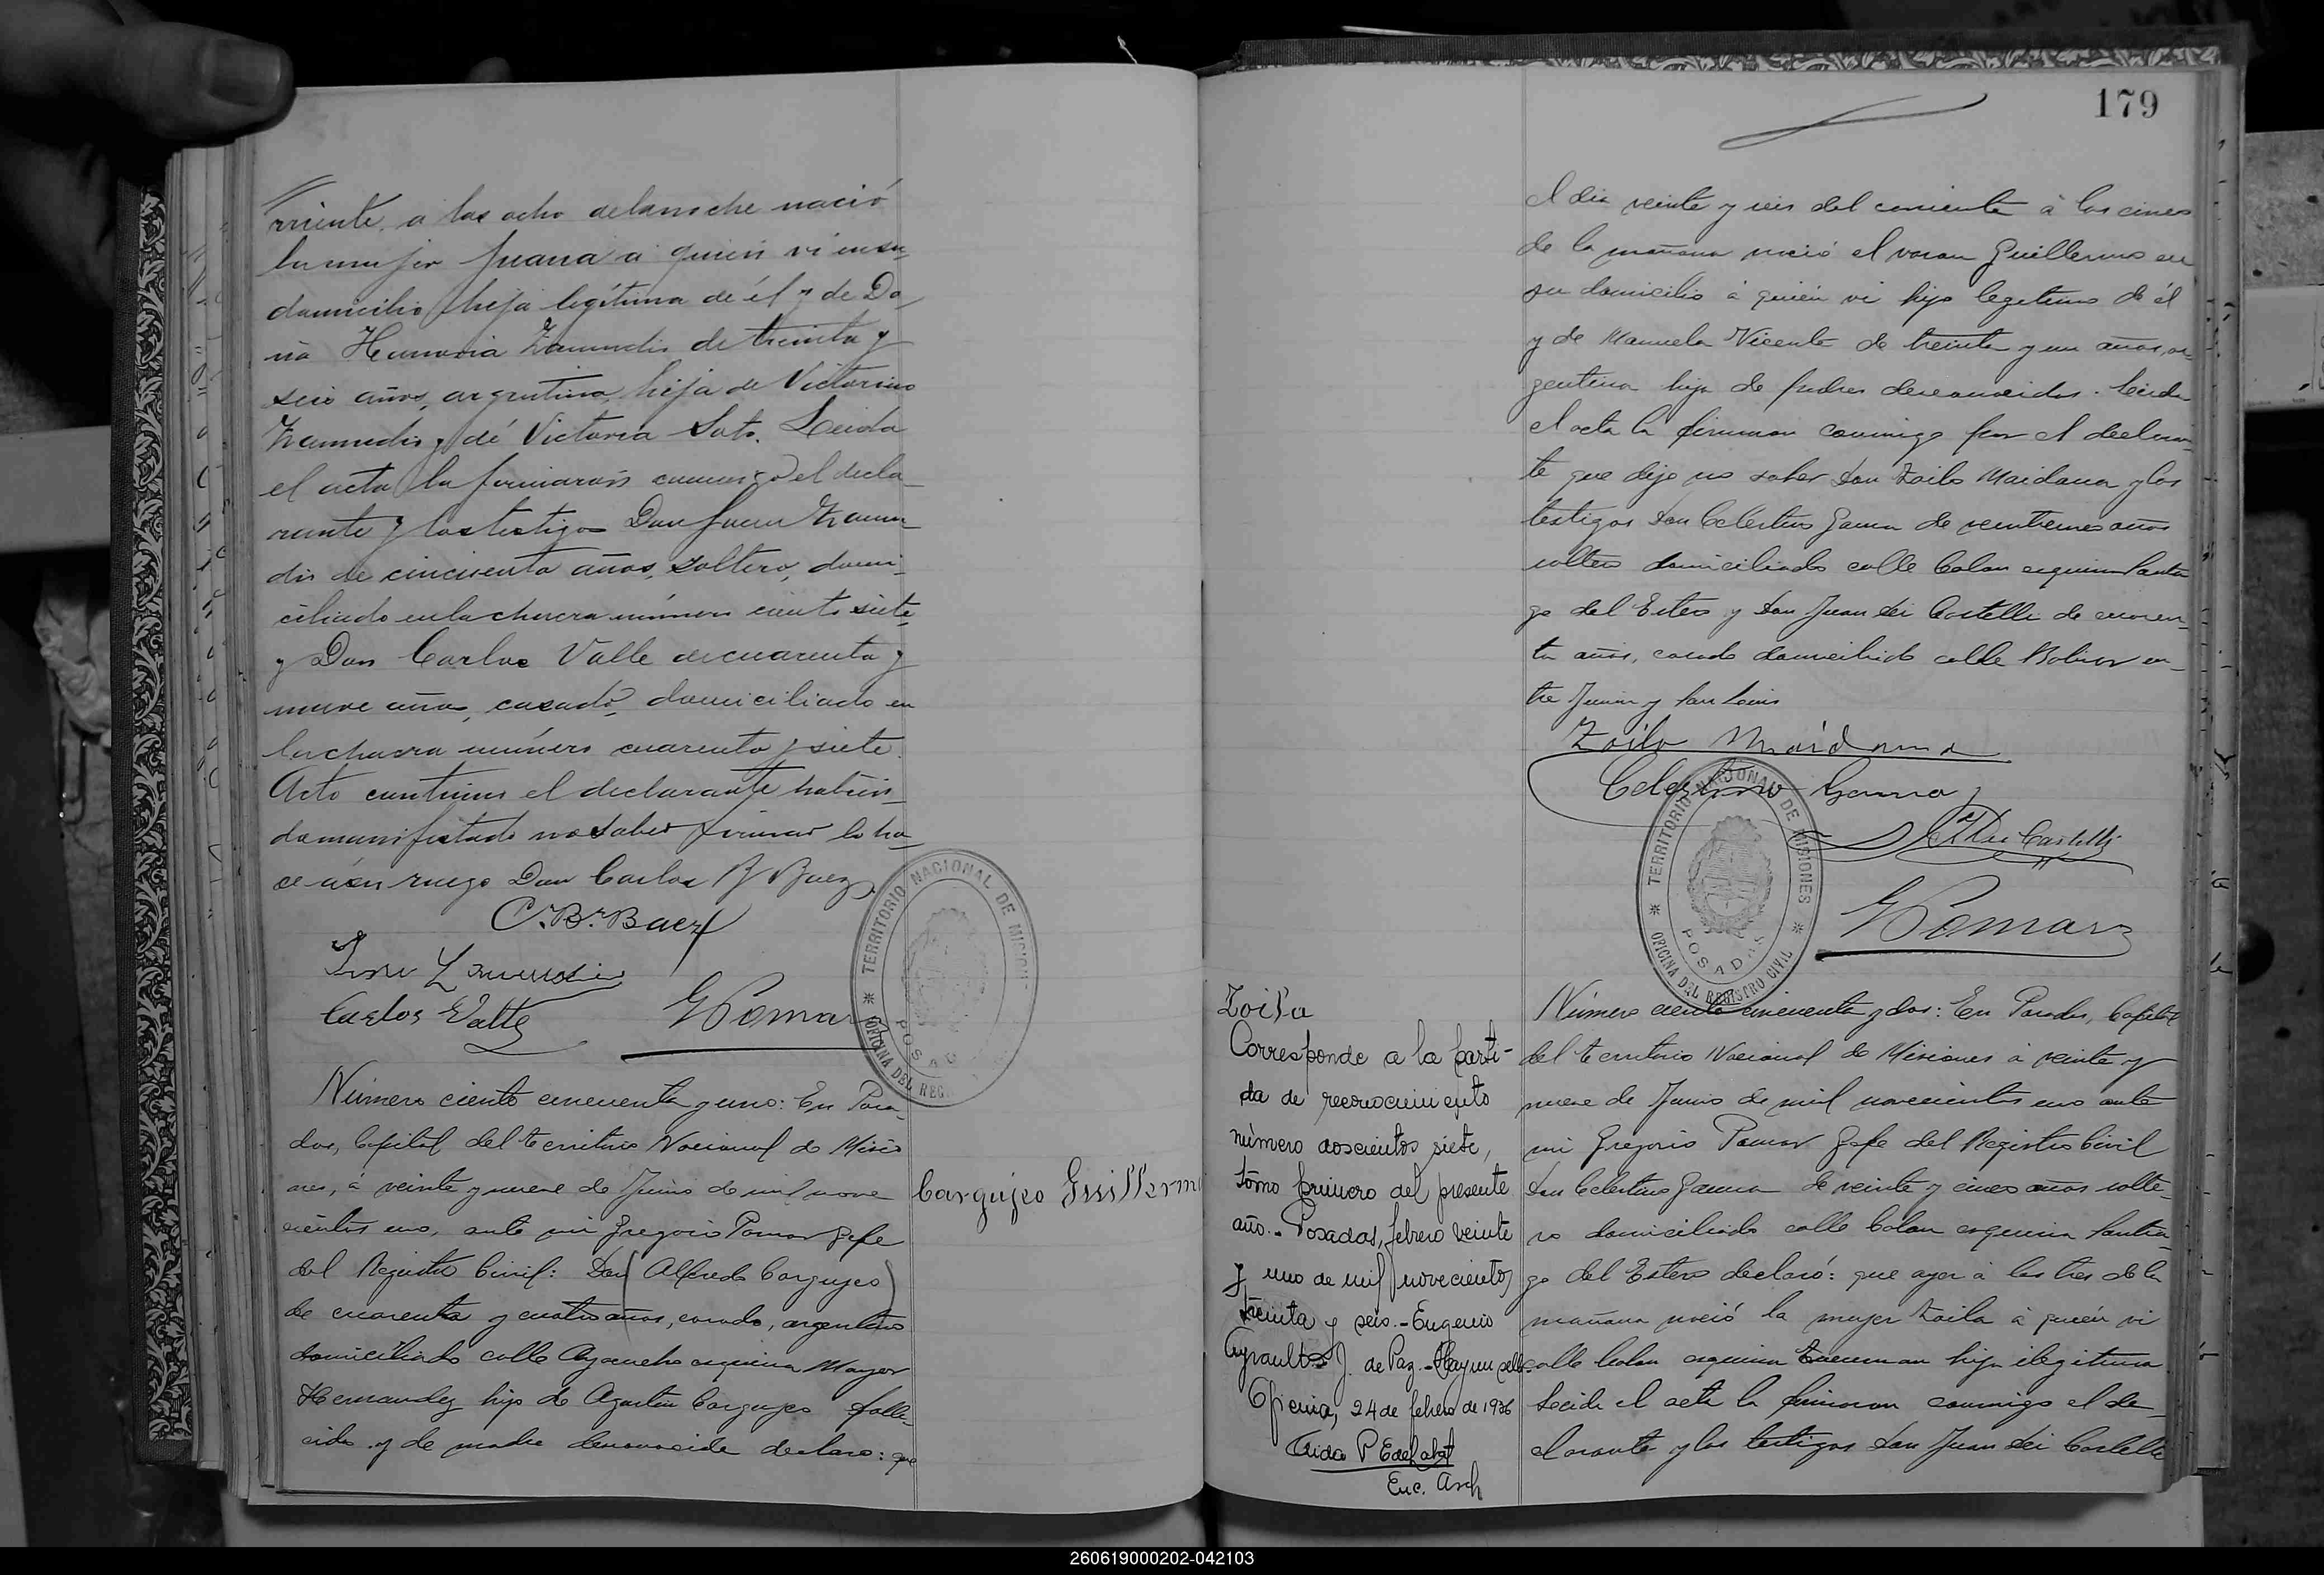 rriente, a las ocho delanoche nació
la mujer Juana a quien vi en su
domicilio hija legítima de él y de Do
ña Zamudis de treinta y
seis años, argentina, hija de Victorino
Zamudis y de Victoria Soto. Leida
el acta la firmaron conmigo el decla
rante y los testigos Don Juan Zamu
dis de cincuenta años, soltero, domi
ciliado en la chacra número ciento siete
y Don Carlos Valle de cuarenta y
nueve años, casado, domiciliado en
la chacra número cuarenta y siete.
Acto continuo el declarante habien
do manifestado no saber firmar lo ha
ce a su ruego Don Carlos B Baez.
C. B. Baez
Carlos Valle
GPomar
TERRITORIO NACIONAL DE MISION
POSAD
OFICINA DEL REG
Número ciento cincuenta y uno: En Posa
das, Capital del territorio Nacional de Misio
nes, á veinte y nueve de Junio de mil nove
cientos uno, ante mi Gregorio Pomar Gefe
del Registro Civil: Don (Alfredo Carguyeo)
de cuarenta y cuatro años, casado, argentino
domiciliado calle Ayacucho esquina Mayor
Hernandez hijo de Agustin Carguyeo falle
cido y de madre desconocida declaro: que
Guillermo
179
el dia veinte y seis del corriente á las cinco
de la mañana nació el varon Guillermo en
su domicilio á quién vi hijo legitimo de él
y de Manuela Vicente de treinta y un años, ar
gentina hija de padres desconocidos. Leida
el acta la firmaron conmigo por el declaran
te que dijo no saber Don Zoilo Maidana y los
testigos Don Celestino Gauna de años
soltero domiciliado calle Colon esquina Santia
go del Estero y Don Juan Dei Castelli de cuaren
ta años, casado domiciliado calle Bolivar en
tre Junin y San Luis
Zoilo Maidana
Celestino Gauna
Dei Castelli
GPomar
TERRITORIO NACIONAL DE MISIONES
POSADAS
OFICINA DEL REGISTRO CIVIL
Zoila
Corresponde a la parti-
da de reconocimiento
número doscientos siete,
tomo primero del presente
año.- Posadas, febrero veinte
y uno de mil novecientos
treinta y seis.- Eugenio
J. de Paz.- Hay un sello
Oficina, 24 de febrero de 1936
Enc. Arch
Número ciento cincuenta y dos: En Posadas, Capital
del territorio Nacional de Misiones á veinte y
nueve de Junio de mil novecientos uno ante
mi Gregorio Pomar Gefe del Registro Civil
Don Celestino Gauna de veinte y cinco años solte
ro domiciliado calle Colon esquina Santia
go del Estero declaró: que ayer á las tres de la
mañana nació la mujer Zoila á quién vi
calle Colon esquina Tucuman hija ilegitima
Leida el acta la firmaron conmigo el de
clarante y los testigos Don Juan Dei Castelli
260619000202-042103